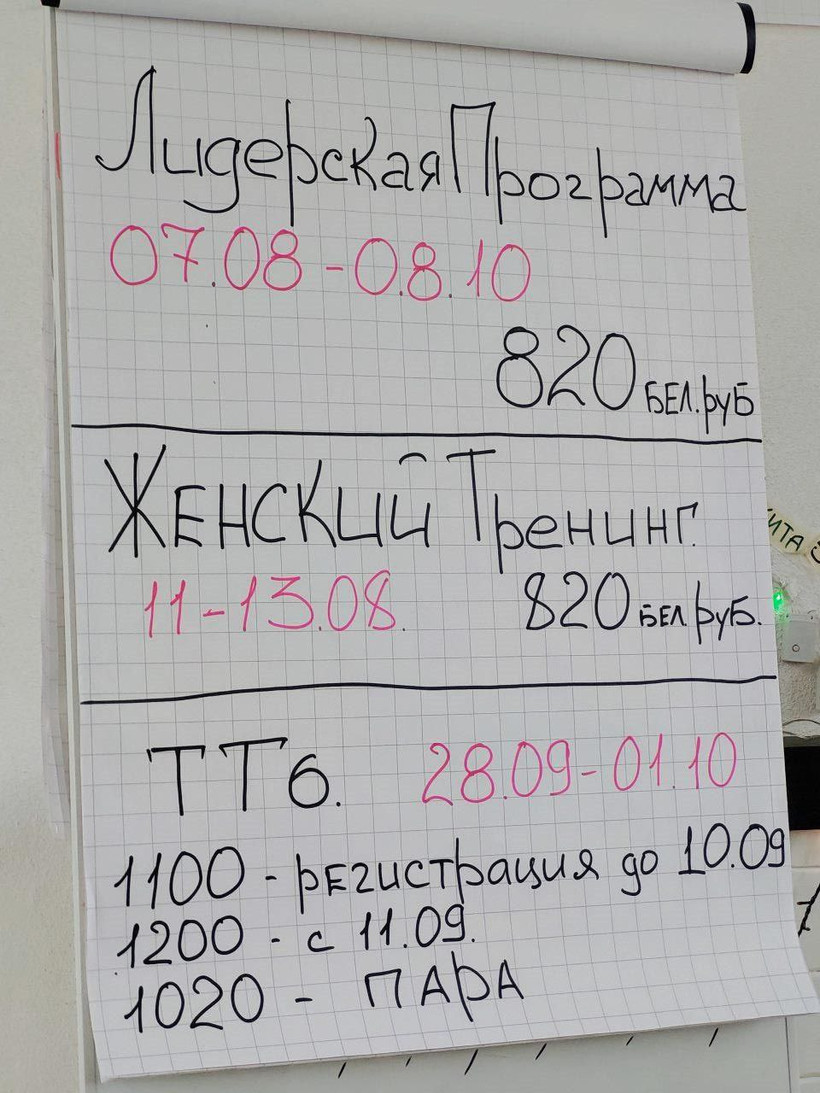 Лидерская Программа
07.08 - 0.8.10
820 БЕЛ.руБ
ЖЕНСКИЙ Тренинг.
11-13.08. 820 БЕЛ.руБ.
ТТ6. 28.09-01.10
1100 - рЕгистрация до 10.09
1200 - с 11.09.
1020 - ПАрА